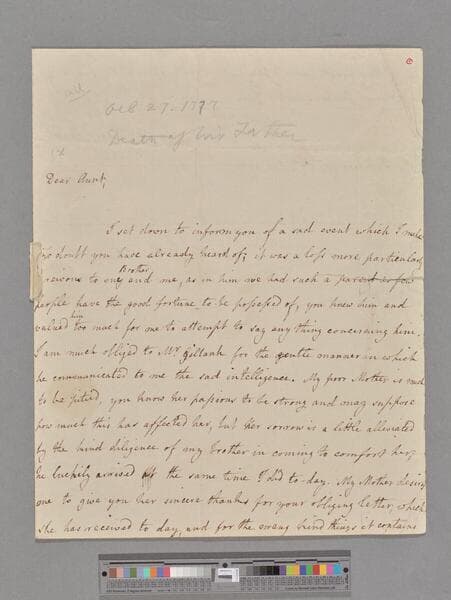 Oct 27-1777
Death of his Father
Dear Aunt,
I set down to inform you of a sad event which I make
no doubt you have already heard of; it was a loss more particularly
grievous to my Brother and me, as in him we had such a parent as few
people have the good fortune to be possessed of, you knew him and
valued him too much for me to attempt to say any thing concerning him.
I am much obliged to Mr. for the gentle manner in which
he communicated to me the sad intelligence. My poor Mother is much
to be pitied, you know her passions to be strong and may suppose
how much this has affected her, but her sorrow is a little alleviated
by the kind diligence of my brother in coming to comfort her,
he luckily arrived at the same time I did to-day. My Mother desires
me to give you her sincere thanks for your obliging letter, which
she has received to day, and for the many kind things it contains